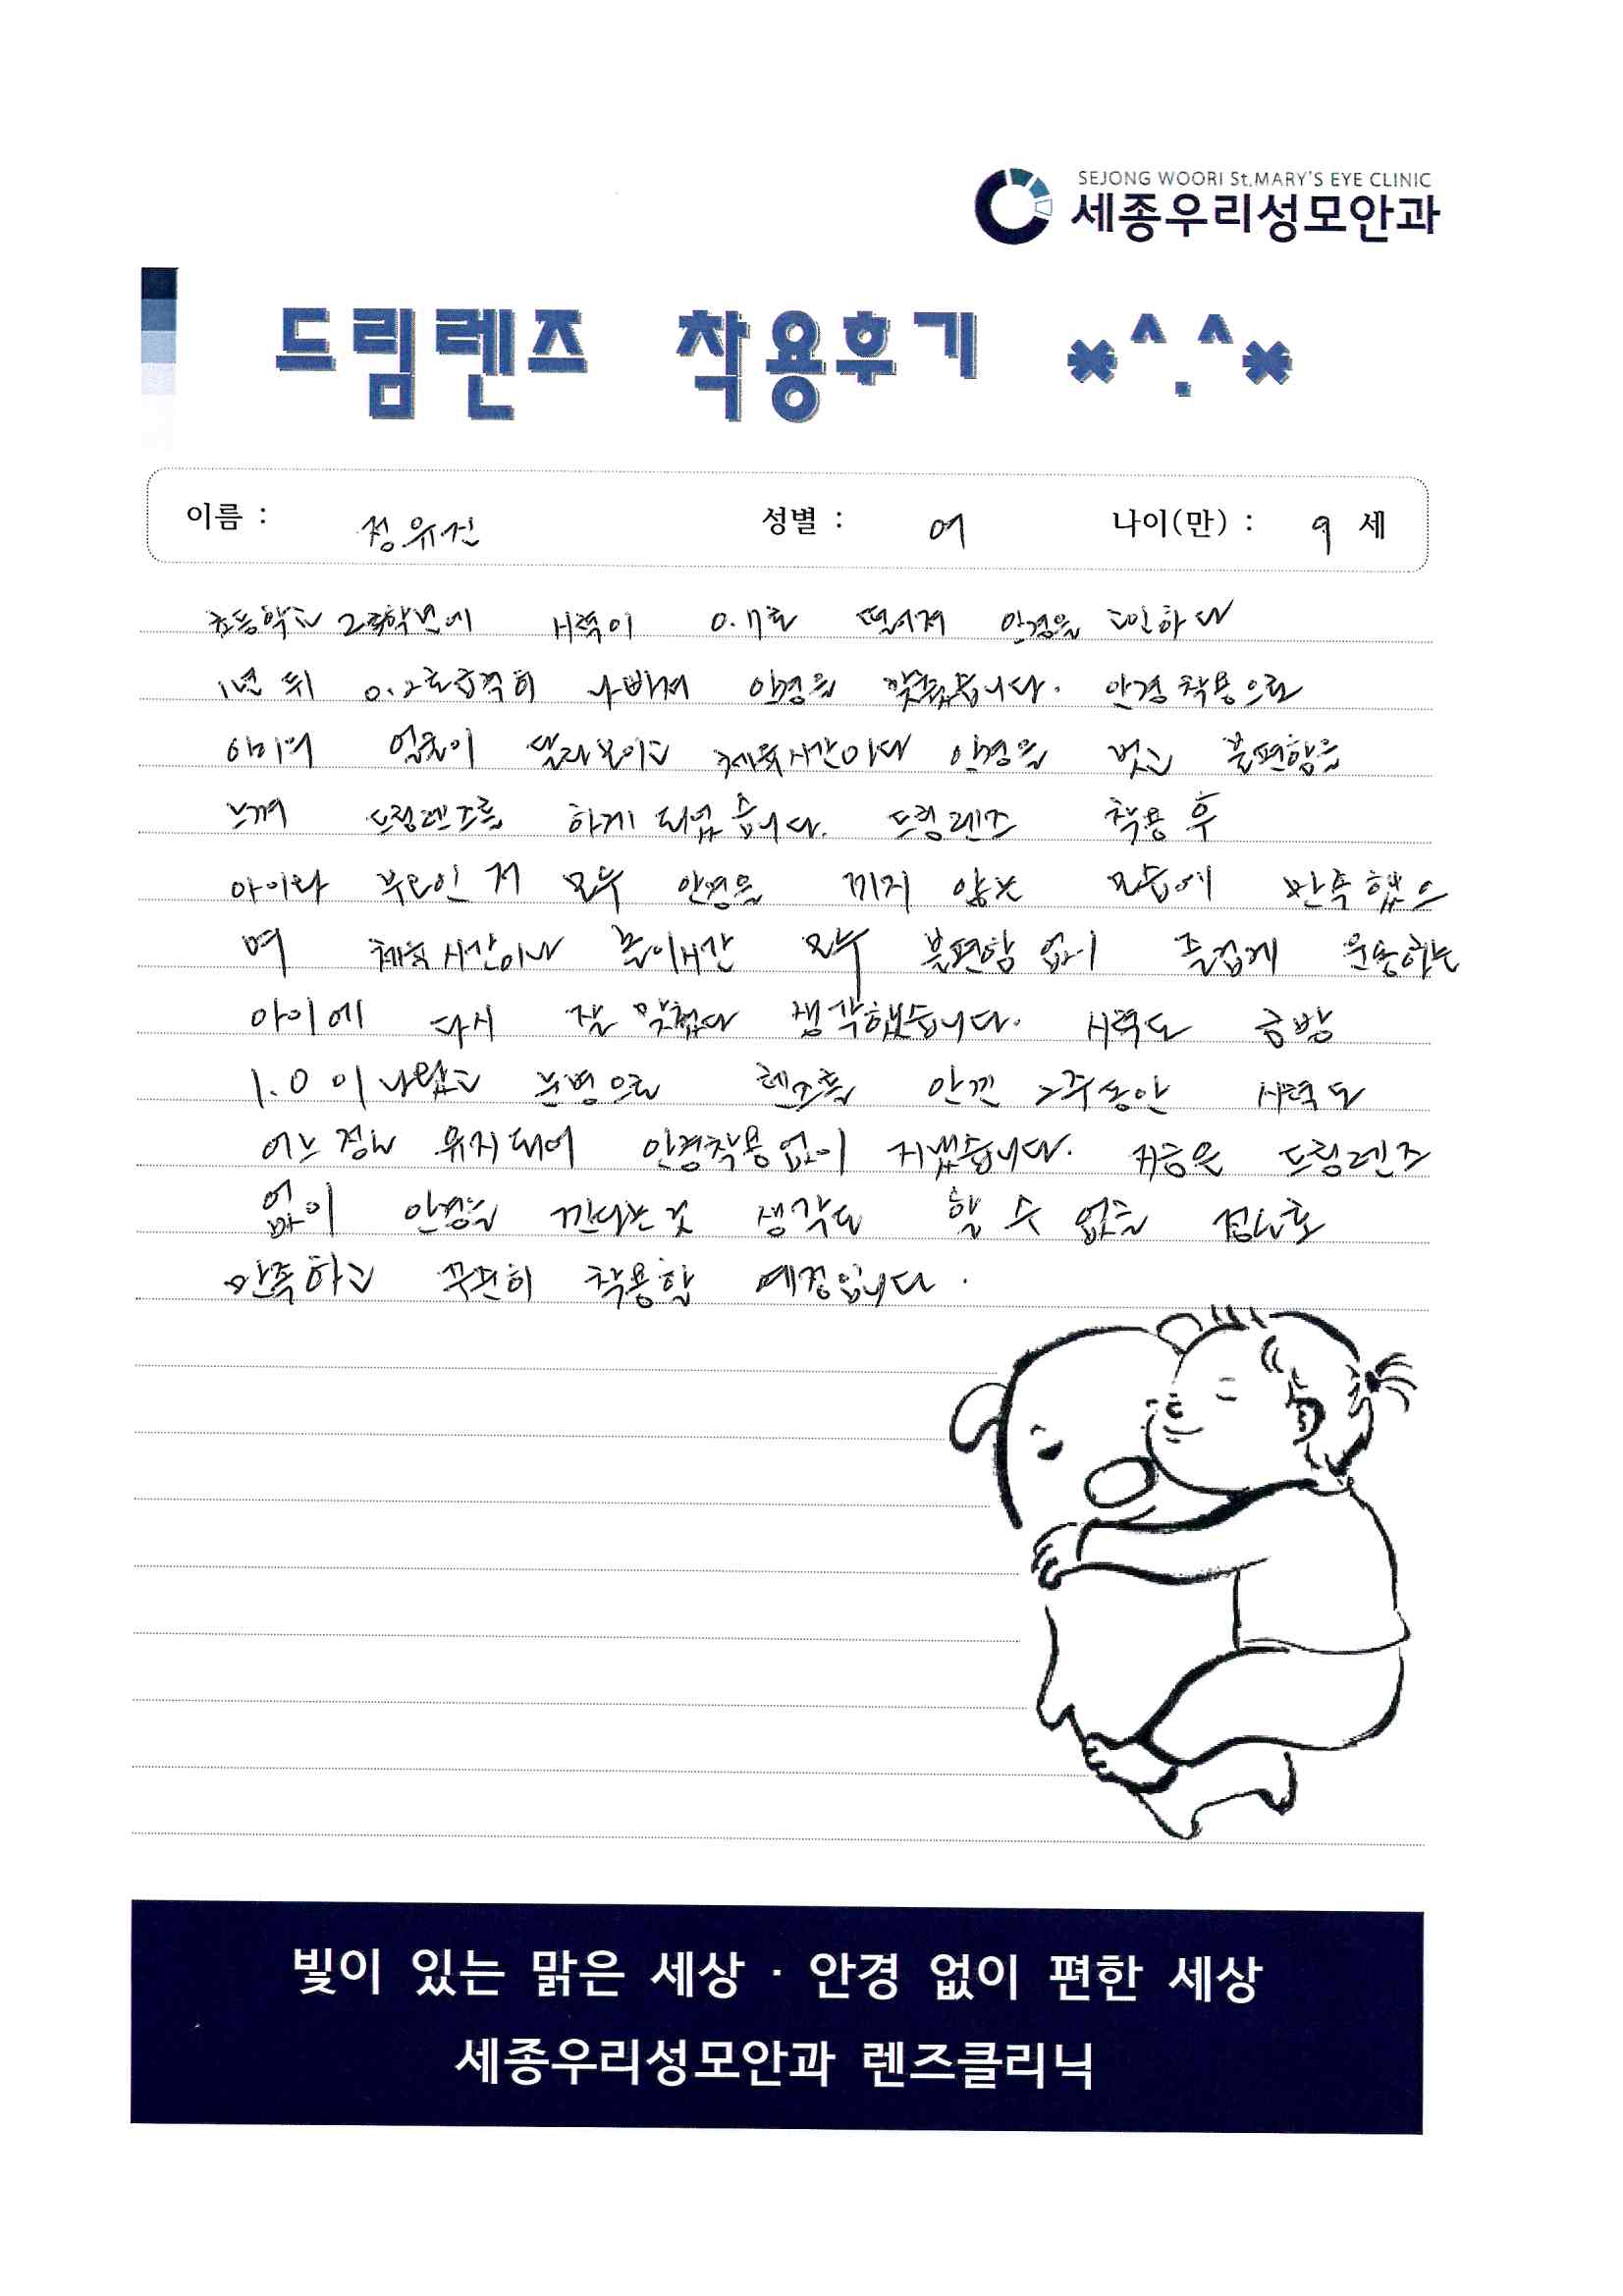 SEJONG WOORI St.MARY'S EYE CLINIC
세종우리성모안과
드림렌즈 착용후기 *^.^*
이름 : 정유선 성별 : 여 나이(만) : 9 세
초등학교 2학년에 시력이 0.7로 떨어져 안경을 고민하다
1년 뒤 0.2로 급격히 나빠져 안경을 맞췄습니다. 안경 착용으로
아이의 얼굴이 달라보이고 체육시간마다 안경을 벗고 불편함을
느껴 드림렌즈를 하게 되었습니다. 드림렌즈 착용 후
아이와 부모인 저 모두 안경을 끼지 않는 모습에 만족했으
며 체육시간이나 놀이시간 모두 불편함 없이 즐겁게 운동하는
아이에 다시 잘 맞췄다 생각했습니다. 시력도 금방
1.0이 나왔고 눈병으로 렌즈를 안낀 2주동안 시력도
어느 정도 유지되어 안경착용없이 지냈습니다. 지금은 드림렌즈
없이 안경을 낀다는 것 생각도 할 수 없을 정도로
만족하고 꾸준히 착용할 예정입니다.
빛이 있는 맑은 세상 · 안경 없이 편한 세상
세종우리성모안과 렌즈클리닉